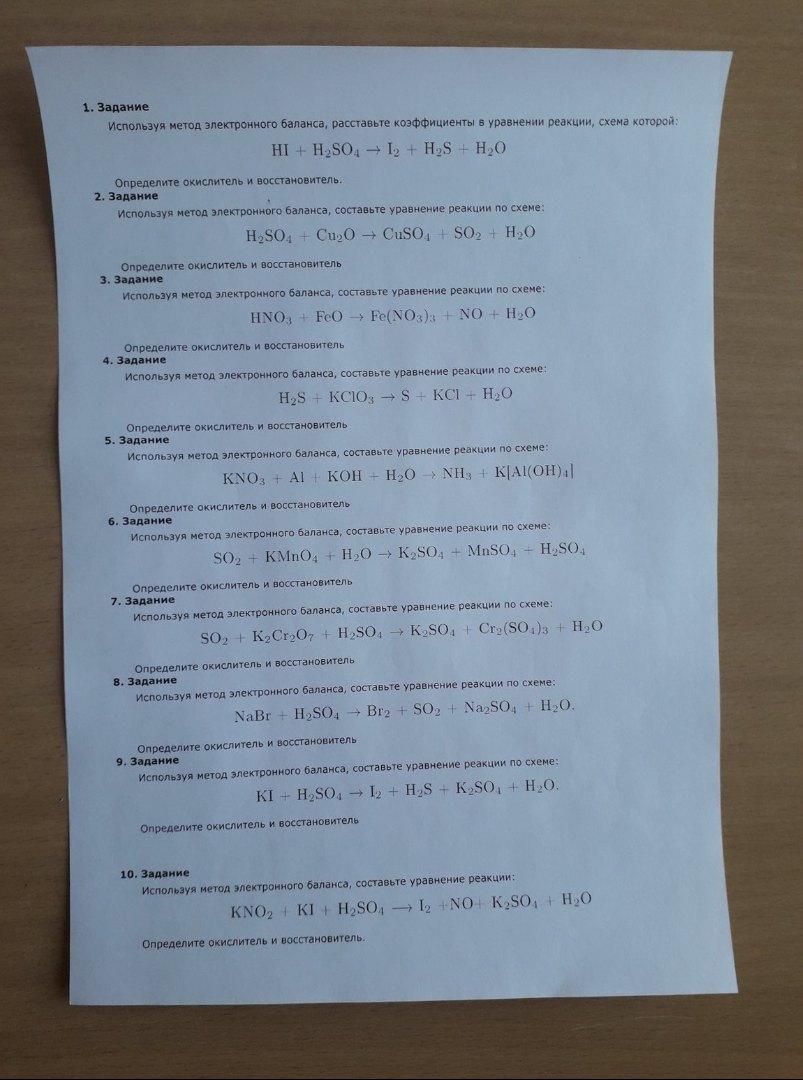 1. Задание
Используя метод электронного баланса, расставьте коэффициенты в уравнении реакции, схема которой:
HI + H₂SO₄ → I₂ + H₂S + H₂O
Определите окислитель и восстановитель.
2. Задание
Используя метод электронного баланса, составьте уравнение реакции по схеме:
H₂SO₄ + Cu₂O → CuSO₄ + SO₂ + H₂O
Определите окислитель и восстановитель
3. Задание
Используя метод электронного баланса, составьте уравнение реакции по схеме:
HNO₃ + FeO → Fe(NO₃)₃ + NO + H₂O
Определите окислитель и восстановитель
4. Задание
Используя метод электронного баланса, составьте уравнение реакции по схеме:
H₂S + KClO₃ → S + KCl + H₂O
Определите окислитель и восстановитель
5. Задание
Используя метод электронного баланса, составьте уравнение реакции по схеме:
KNO₃ + Al + KOH + H₂O → NH₃ + K[Al(OH)₄]
Определите окислитель и восстановитель
6. Задание
Используя метод электронного баланса, составьте уравнение реакции по схеме:
SO₂ + KMnO₄ + H₂O → K₂SO₄ + MnSO₄ + H₂SO₄
Определите окислитель и восстановитель
7. Задание
Используя метод электронного баланса, составьте уравнение реакции по схеме:
SO₂ + K₂Cr₂O₇ + H₂SO₄ → K₂SO₄ + Cr₂(SO₄)₃ + H₂O
Определите окислитель и восстановитель
8. Задание
Используя метод электронного баланса, составьте уравнение реакции по схеме:
NaBr + H₂SO₄ → Br₂ + SO₂ + Na₂SO₄ + H₂O.
Определите окислитель и восстановитель
9. Задание
Используя метод электронного баланса, составьте уравнение реакции по схеме:
KI + H₂SO₄ → I₂ + H₂S + K₂SO₄ + H₂O.
Определите окислитель и восстановитель
10. Задание
Используя метод электронного баланса, составьте уравнение реакции:
KNO₂ + KI + H₂SO₄ ⟶ I₂ +NO+ K₂SO₄ + H₂O
Определите окислитель и восстановитель.